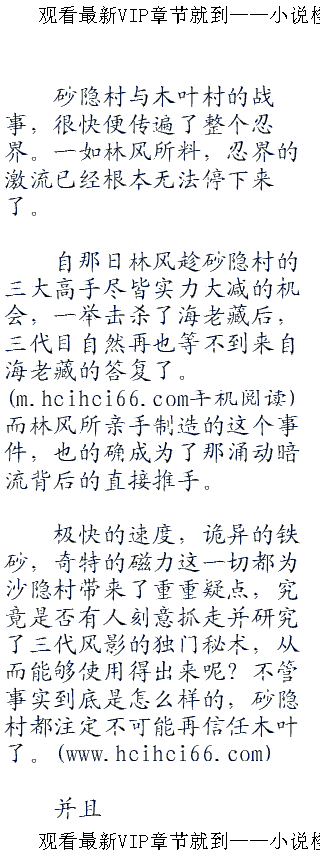 观看最新VIP章节就到——小说楼
砂隐村与木叶村的战
事，很快便传遍了整个忍
界。一如林风所料，忍界的
激流已经根本无法停下来
了。
自那日林风趁砂隐村的
三大高手尽皆实力大减的机
会，一举击杀了海老藏后，
三代目自然再也等不到来自
海老藏的答复了。
(m.hcihci66.com手机阅读)
而林风所亲手制造的这个事
件，也的确成为了那涌动暗
流背后的直接推手。
极快的速度，诡异的铁
砂，奇特的磁力这一切都为
沙隐村带来了重重疑点，究
竟是否有人刻意抓走并研究
了三代风影的独门秘术，从
而能够使用得出来呢？不管
事实到底是怎么样的，砂隐
村都注定不可能再信任木叶
了。(www.hcihci66.com)
并且
观看最新VIP章节就到——小说